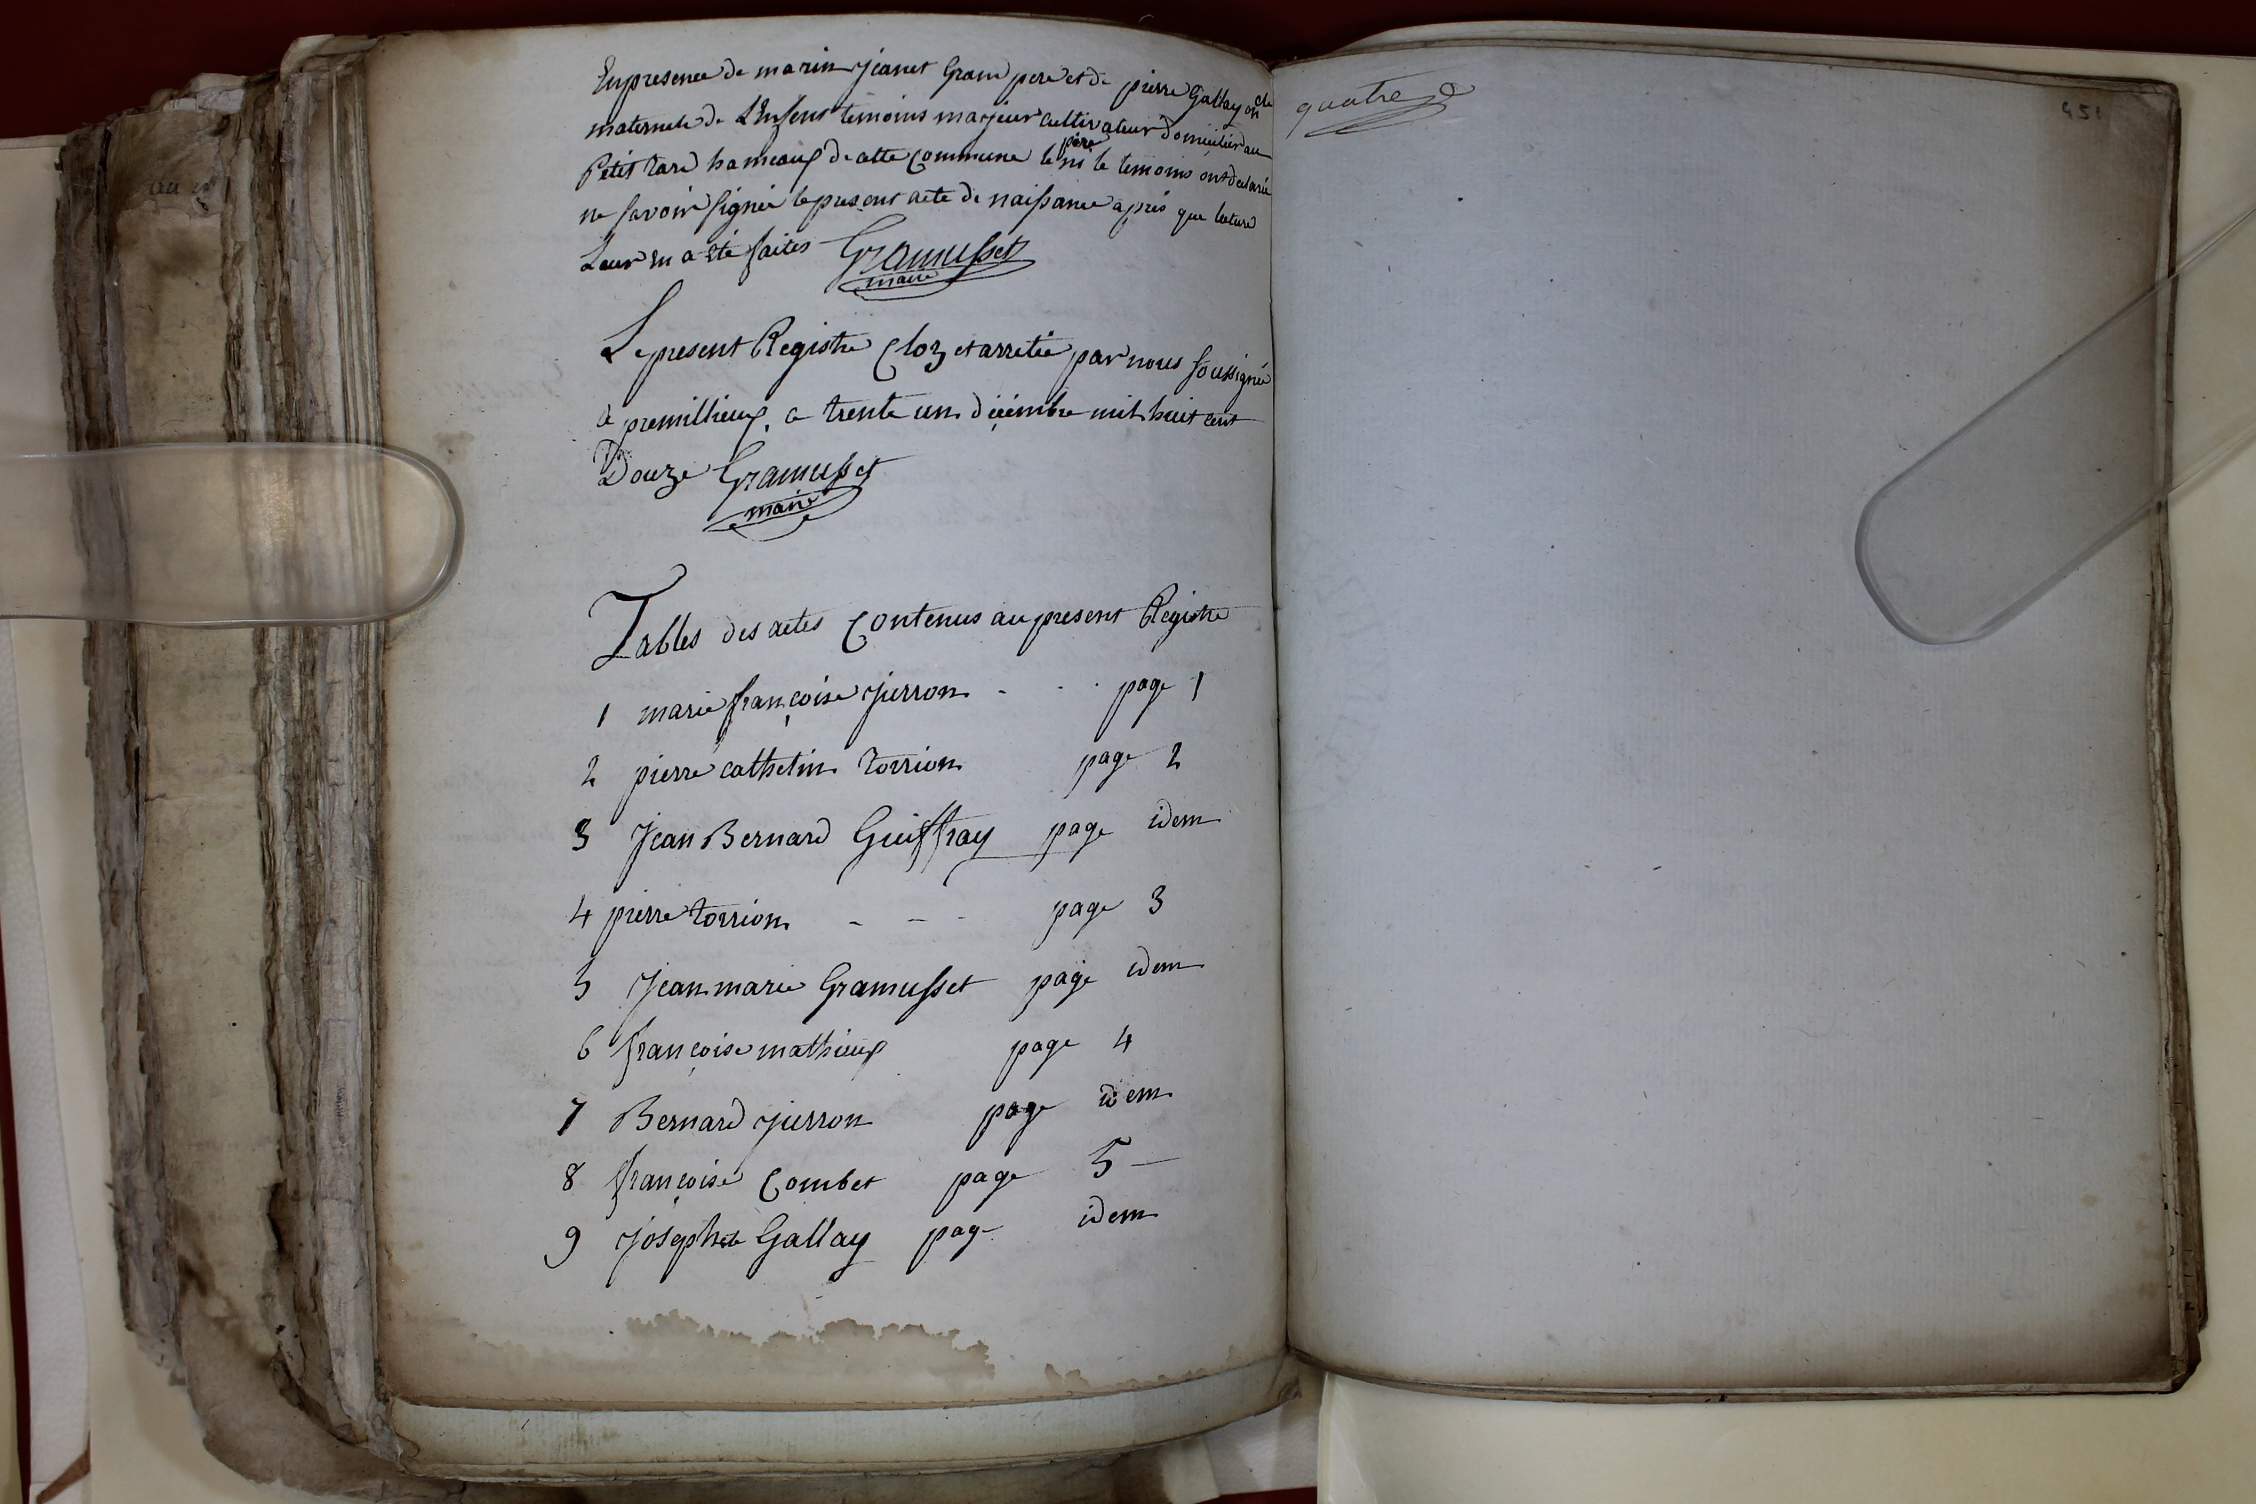 En presence de marin Jeanet Grand pere et de pierre Gallay oncle
maternele de L'Enfent temoins majeur cultivateur domicilié au
Petit tare hameaux de cette commune le père ni le temoins ont declarée
ne savoir signée le present acte de naissance après que lecture
Leur en a été faites Gramusset
maire
Le present Registre Cloz et arretée par nous soussignée
a premillieux, a trente un decembre mil huit cent
Douze Gramusset
maire
Tables des actes Contenus au present Registre
1 marie françoise Jierron - - - page 1
2 pierre cathelin torrion page 2
3 Jean Bernard Guiffray page idem
4 pierre torrion - - - page 3
5 Jean marie Gramusset page idem
6 françoise mathieux page 4
7 Bernard Jierron page idem
8 françoise Combet page 5 -
9 Josephete Gallay page idem
quatre
451